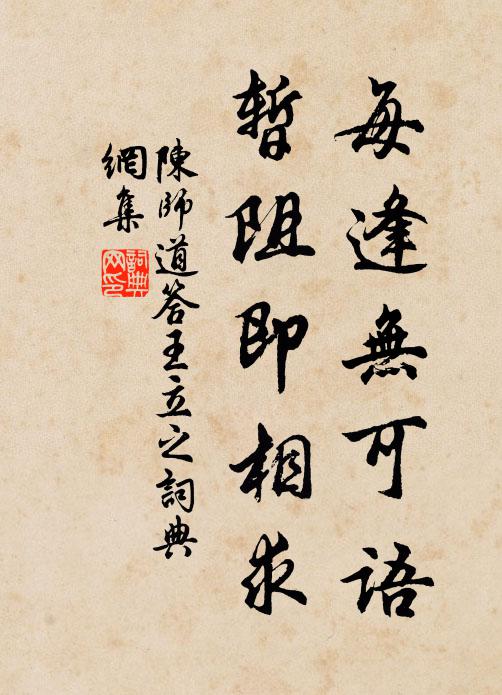 每逢無可語
暫阻即相求
陳師道答王立之詞典
網集
詞典
网印